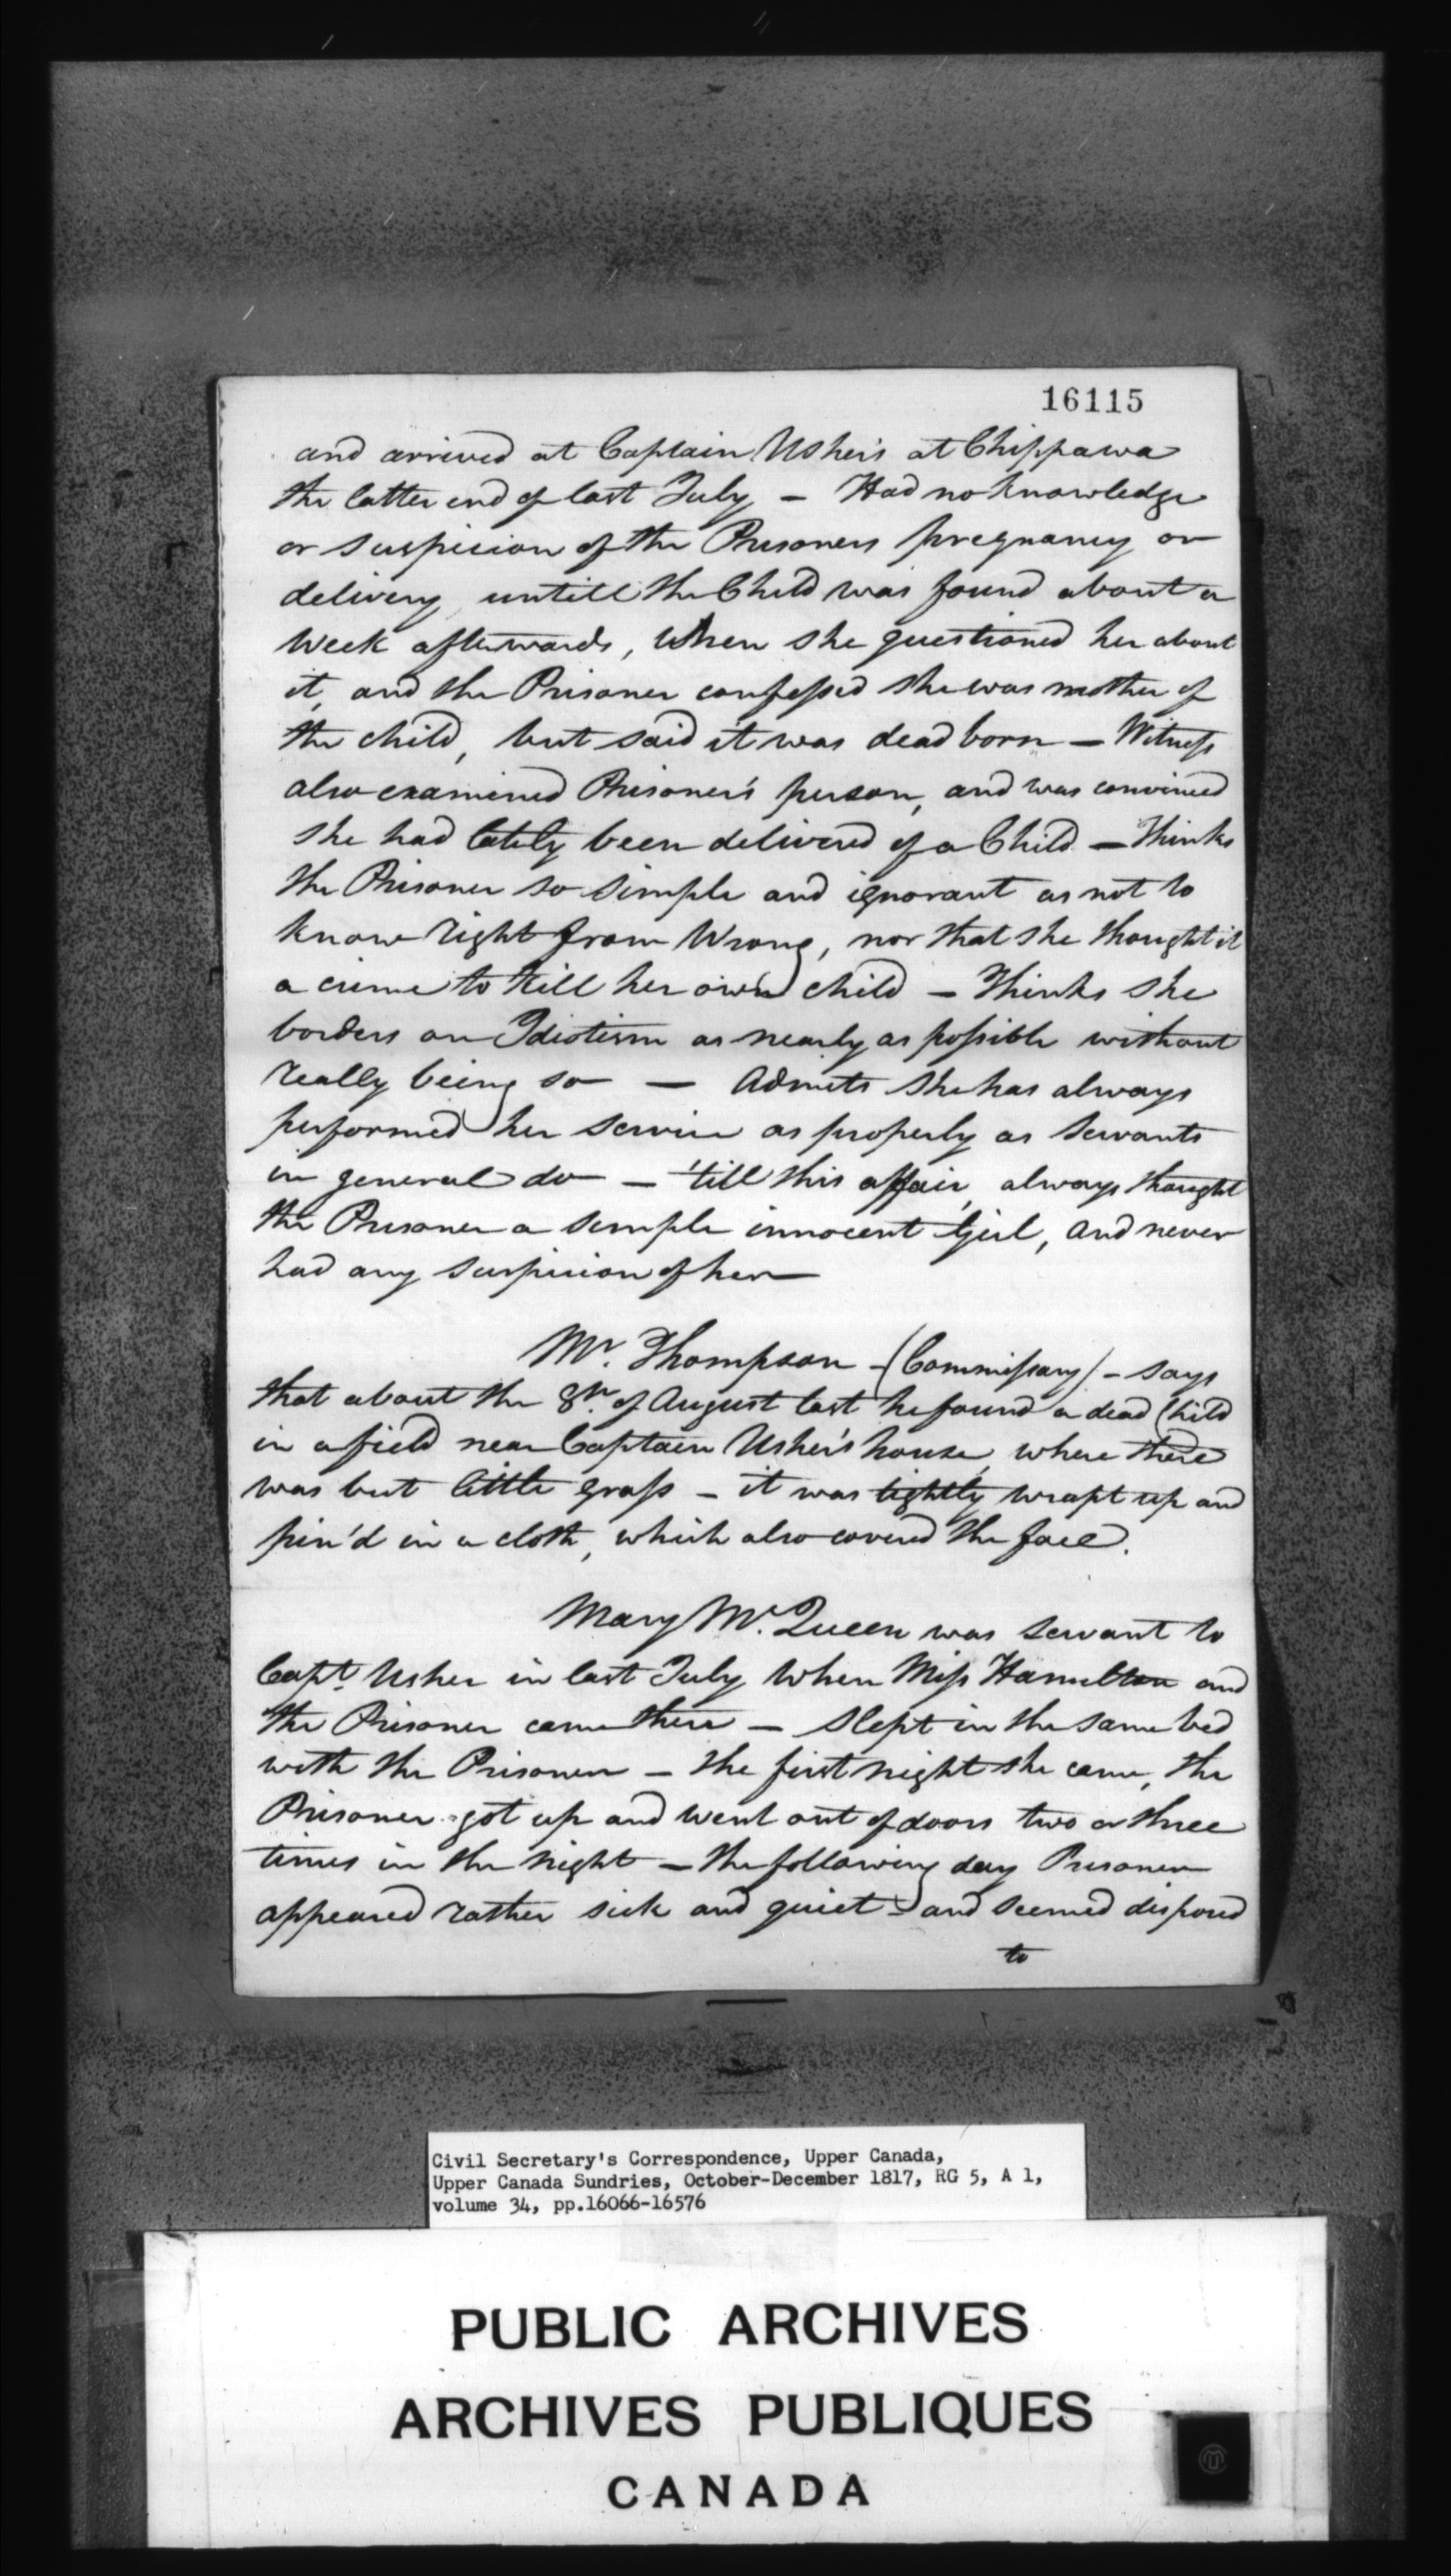 16115
and arrived at Captain Usher's at Chippawa
the latter end of last July – Had no knowledge
or suspicion of the Prisoners pregnancy or
delivery untill the Child was found about a
week afterwards, when she questioned her about
it, and the Prisoner confessed she was mother of
the child, but said it was dead born – Witness
also examined Prisoner's person, and was convinced
she had lately been delivered of a Child – Thinks
the Prisoner so simple and ignorant as not to
know right from Wrong, nor that she thought it
a crime to kill her own child – Thinks she
borders on Idiotism as nearly as possible without
really being so – Admits she has always
performed her service as properly as servants
in general do – 'till this affair, always thought
the Prisoner a simple innocent Girl, and never
had any suspicion of her
Mr. Thompson – (Commissary) – says
that about the 8th. of August last he found a dead Child
in a field near Captain Usher's house, where there
was but little grass – it was tightly wrapt up and
pin'd in a cloth, which also covered the face.
Mary Mc.Queen was servant to
Capt. Usher in last July when Miss Hamilton and
the Prisoner came there – Slept in the same bed
with the Prisoner – the first night she came, the
Prisoner got up and went out of doors two or three
times in the night – the following day Prisoner
appeared rather sick and quiet – and seemed disposed
to
Civil Secretary's Correspondence, Upper Canada,
Upper Canada Sundries, October-December 1817, RG 5, A 1,
volume 34, pp.16066-16576
PUBLIC ARCHIVES
ARCHIVES PUBLIQUES
CANADA